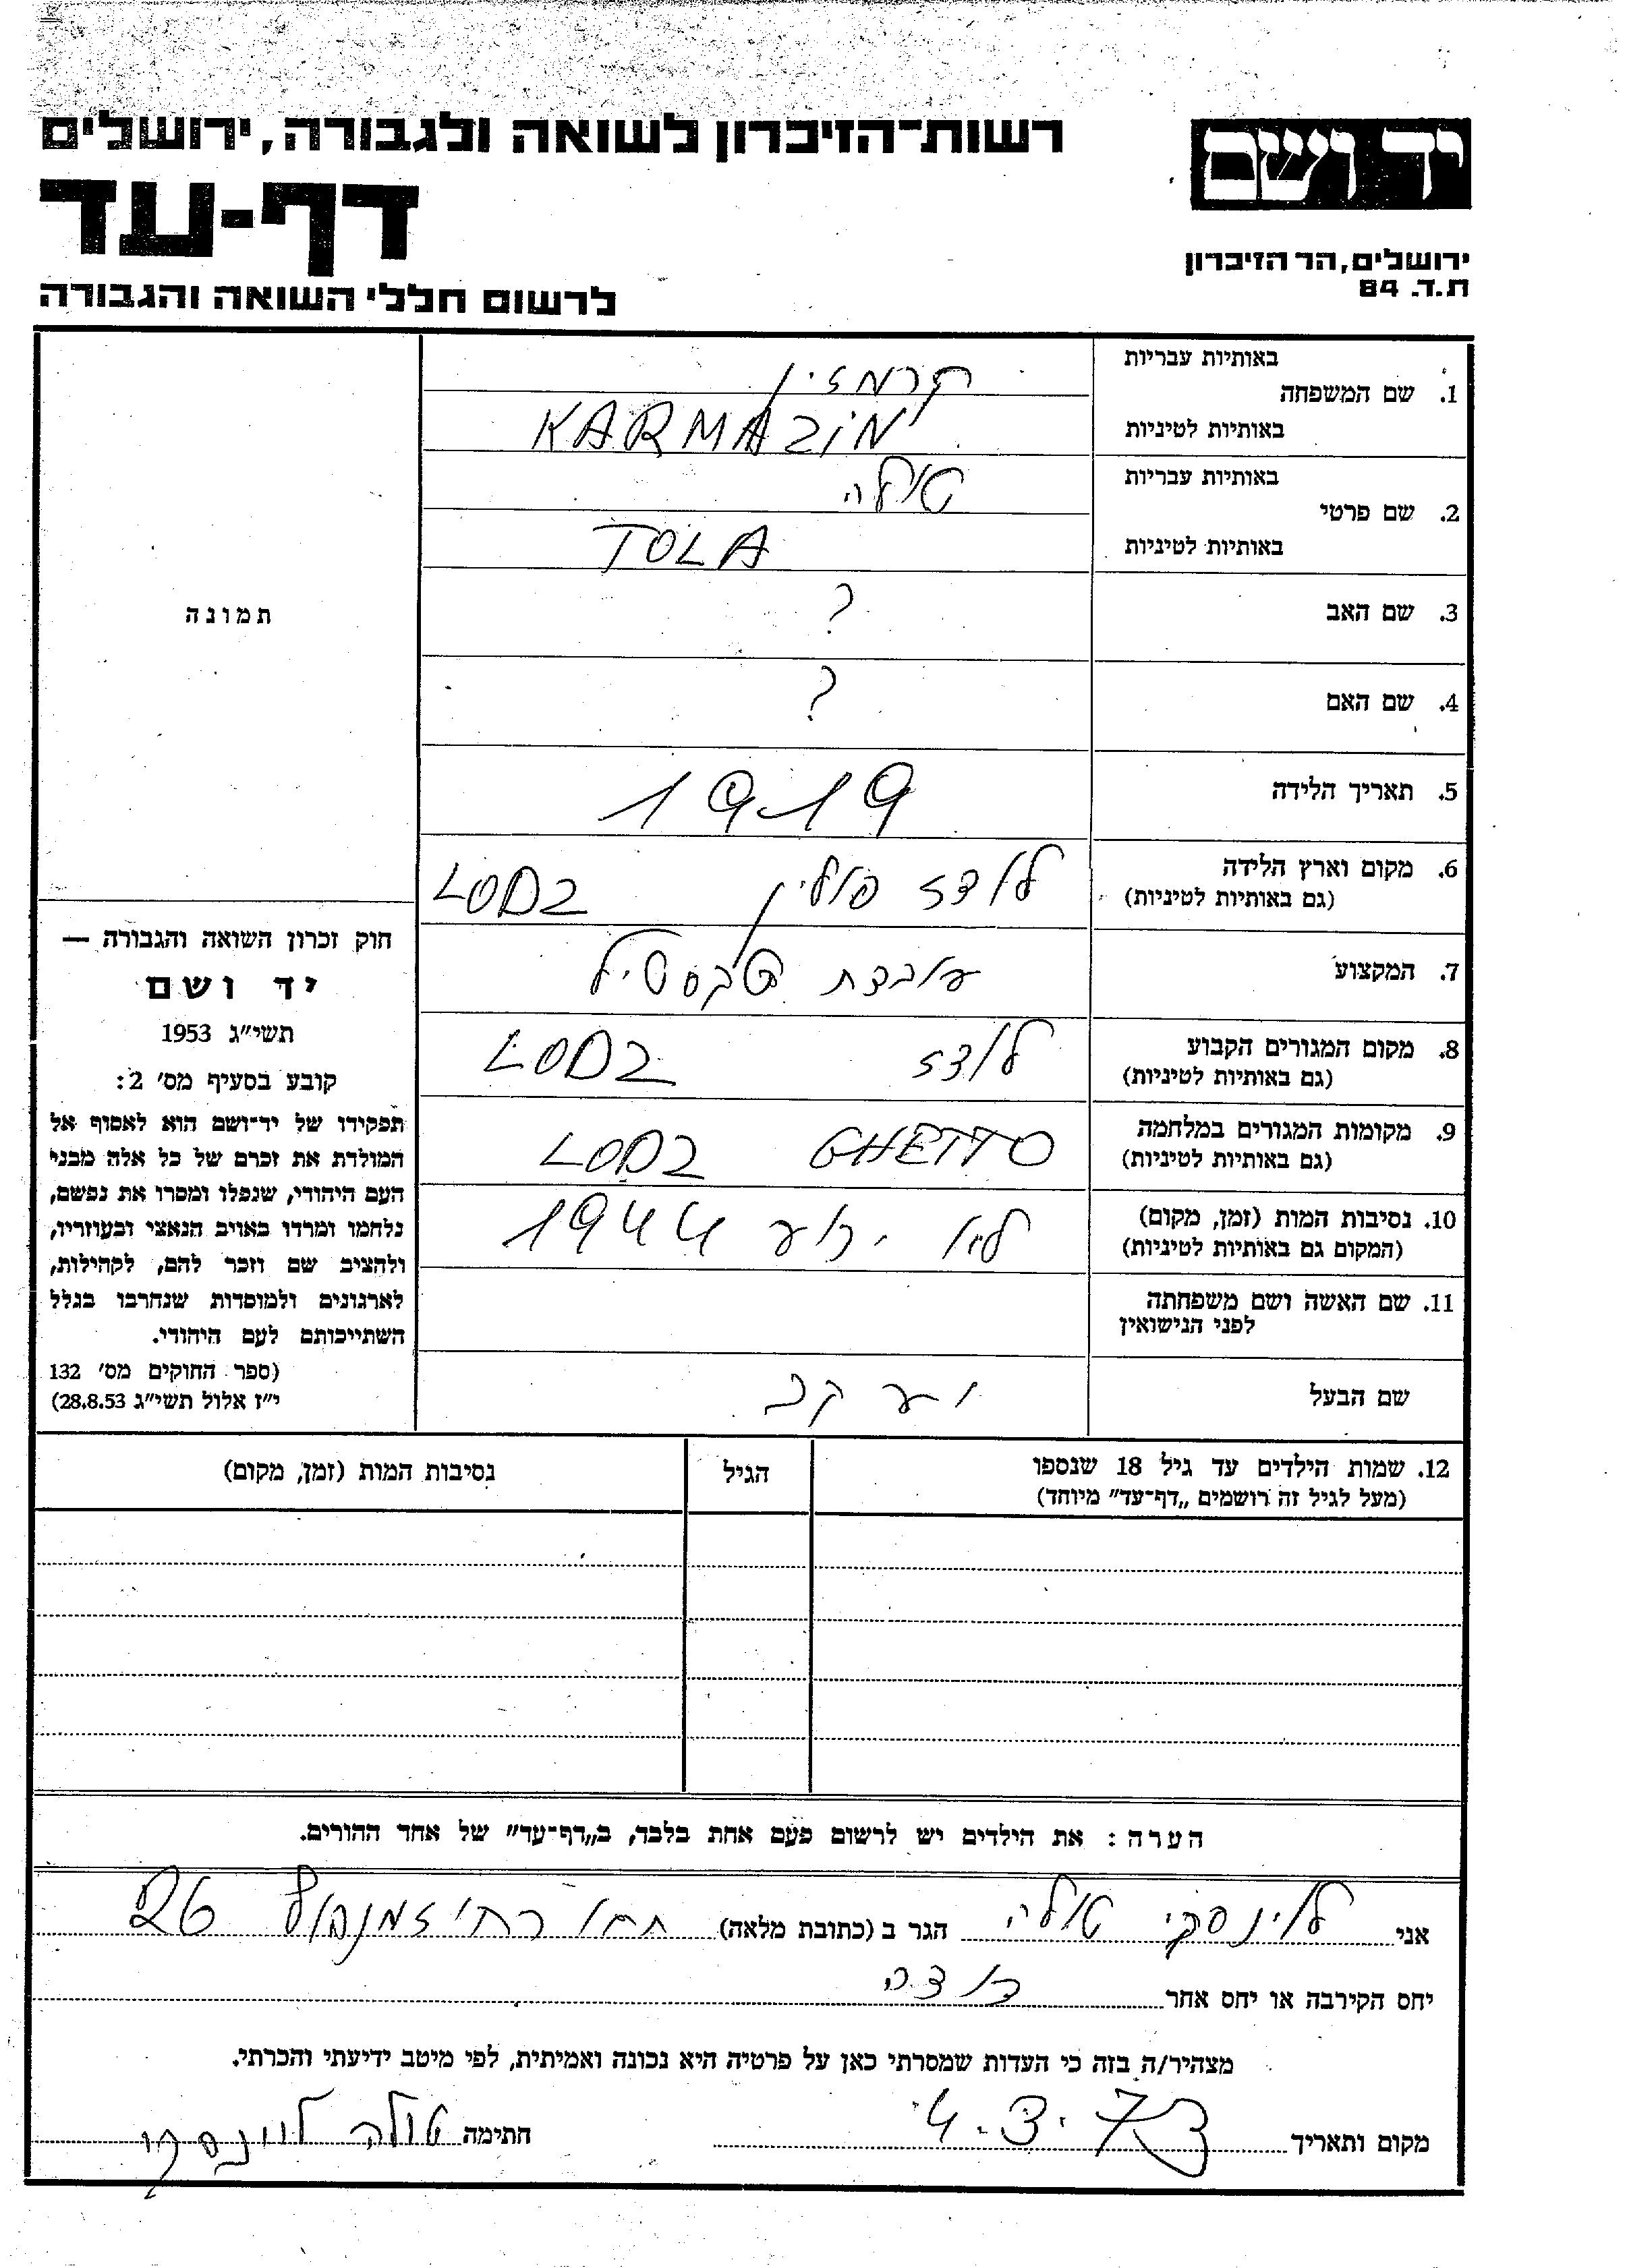 יד ושם
רשות־הזיכרון לשואה ולגבורה, ירושלים
דף-עד
לרשום חללי השואה והגבורה
ירושלים, הר הזיכרון
ת.ד. 84
באותיות עבריות
קרמזין
1. שם המשפחה
באותיות לטיניות
KARMAZIN
באותיות עבריות
טולה
2. שם פרטי
באותיות לטיניות
TOLA
3. שם האב ?
4. שם האם ?
5. תאריך הלידה 1919
6. מקום וארץ הלידה
(גם באותיות לטיניות)
לודז פולין LODZ
7. המקצוע עובדת טקסטיל
8. מקום המגורים הקבוע
(גם באותיות לטיניות)
לודז LODZ
9. מקומות המגורים במלחמה
(גם באותיות לטיניות)
LODZ GHETTO
10. נסיבות המות (זמן, מקום)
(המקום גם באותיות לטיניות)
לא ידוע 1944
11. שם האשה ושם משפחתה
לפני הנישואין
שם הבעל יעקב
תמונה
חוק זכרון השואה והגבורה —
יד ושם
תשי״ג 1953
קובע בסעיף מס׳ 2:
תפקידו של יד־ושם הוא לאסוף אל
המולדת את זכרם של כל אלה מבני
העם היהודי, שנפלו ומסרו את נפשם,
נלחמו ומרדו באויב הנאצי ובעוזריו,
ולהציב שם וזכר להם, לקהילות,
לארגונים ולמוסדות שנחרבו בגלל
השתייכותם לעם היהודי.
(ספר החוקים מס׳ 132
י״ז אלול תשי״ג 28.8.53)
12. שמות הילדים עד גיל 18 שנספו
(מעל לגיל זה רושמים „דף־עד״ מיוחד)
הגיל
נסיבות המות (זמן, מקום)
הערה: את הילדים יש לרשום פעם אחת בלבד, ב„דף־עד״ של אחד ההורים.
אני לוינסקי טולה הגר ב (כתובת מלאה) 26
יחס הקירבה או יחס אחר דודה
מצהיר/ה בזה כי העדות שמסרתי כאן על פרטיה היא נכונה ואמיתית, לפי מיטב ידיעתי והכרתי.
מקום ותאריך 4.3.73
חתימה טולה לוינסקי